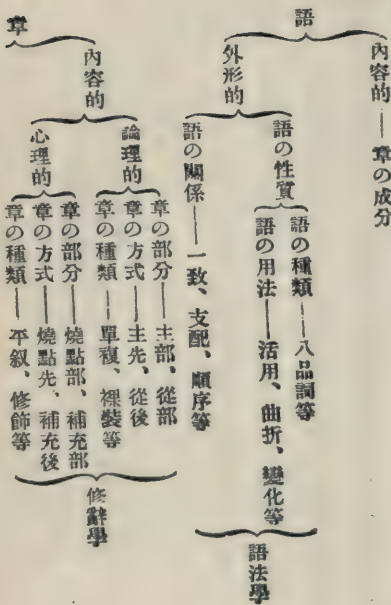 語
內容的——章の成分
外形的
語の性質
語の種類——八品詞等
語の用法——活用、曲折、變化等
語の關係——一致、支配、順序等
語法學
章
內容的
論理的
章の部分——主部、從部
章の方式——主先、從後
章の種類——單複、裸裝等
心理的
章の部分——燒點部、補充部
章の方式——燒點先、補充後
章の種類——平叙、修飾等
修辭學